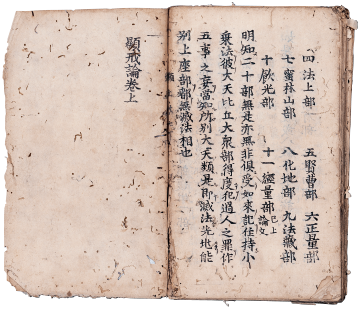 四法上部　五賢曹部　六正量部
七蜜林山部　八化地部　九法蔵部
十飲光部　十一經量部已上論文
明知二十部無是亦無非俱受如来記住持小
乗法彼大天比丘大衆部得度犯過人之罪作
五事之妄當知所別大天類是即滅法先兆能
別上座部都無滅法相也
顕戒論巻上